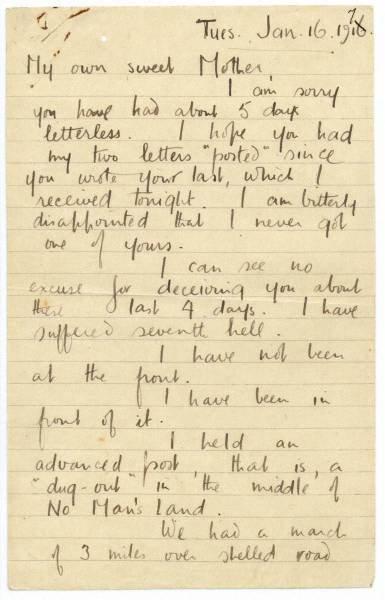 Tues. Jan. 16. 1917
My own sweet Mother,
I am sorry
you have had about 5 days
letterless. I hope you had
my two letters "posted" since
you wrote your last, which I
received tonight. I am bitterly
disappointed that I never got
one of yours.
I can see no
excuse for deceiving you about
these last 4 days. I have
suffered seventh hell.
I have not been
at the front.
I have been in
front of it.
I held an
advanced post, that is, a
"dug-out" in the middle of
No Man's Land.
We had a march
of 3 miles over shelled road